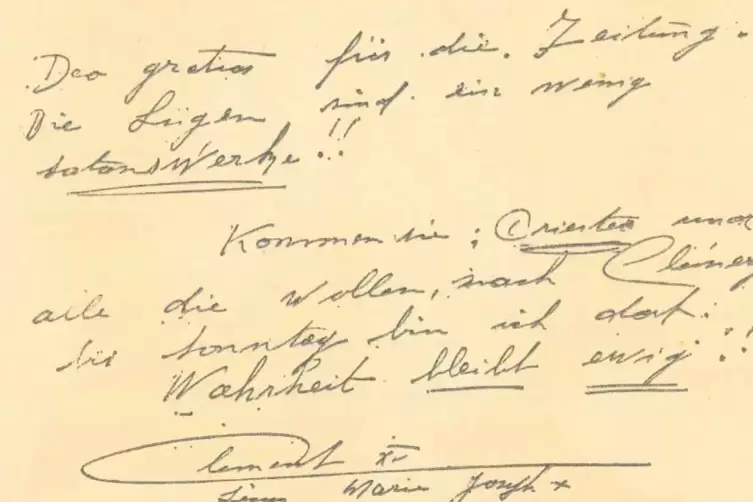 Deo gratias für die Zeitung.
Die Lügen sind ein wenig
satansWerke!!
Kommen sie; Priester und
alle die Wollen, nach Clémery
bis sonntag bin ich dort.
Wahrheit bleibt ewig!!
Clement XV
Marie Joseph +